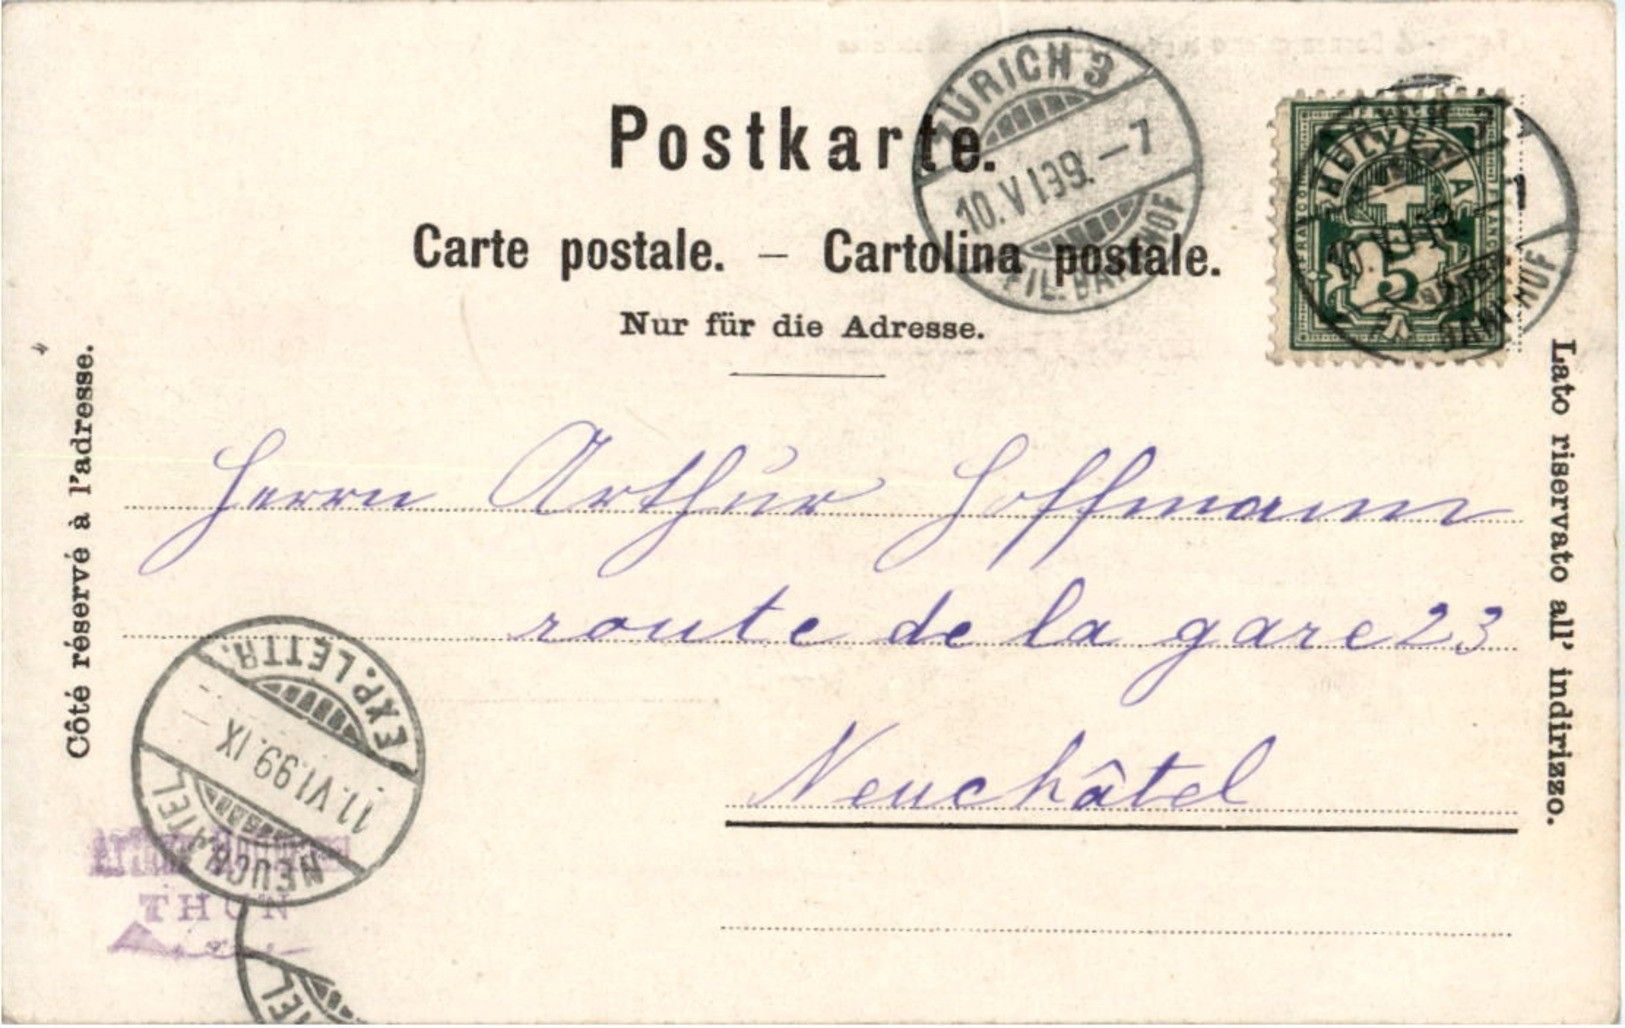 Postkarte.
Carte postale. – Cartolina postale.
Nur für die Adresse.
ZÜRICH 3
10. VI 99. – 7
FIL. BAHNHOF
HELVETIA
5
BAHNHOF
Côté réservé à l'adresse.
Lato riservato all' indirizzo.
Herrn Arthur Hoffmann
route de la gare 23
Neuchâtel
EXP. LETTR.
11. VI. 99. IX
NEUCHÂTEL
THUN
TEL